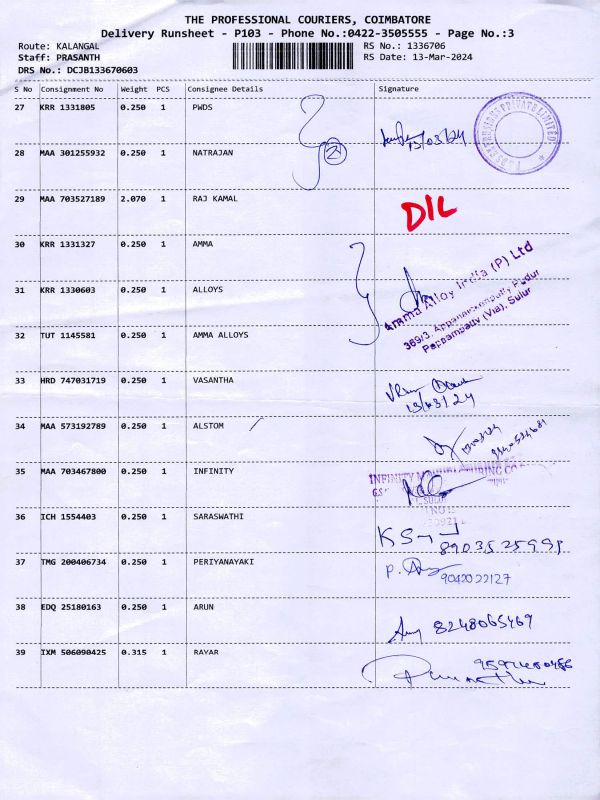 THE PROFESSIONAL COURIERS, COIMBATORE
Delivery Runsheet - P103 - Phone No.:0422-3505555 - Page No.:3
Route: KALANGAL RS No.: 1336706
Staff: PRASANTH RS Date: 13-Mar-2024
DRS No.: DCJB133670603
S No Consignment No Weight PCS Consignee Details Signature
27 KRR 1331805 0.250 1 PWDS
13/03/24
28 MAA 301255932 0.250 1 NATRAJAN 2
29 MAA 703527189 2.070 1 RAJ KAMAL DIL
30 KRR 1331327 0.250 1 AMMA
31 KRR 1330603 0.250 1 ALLOYS
Amma Alloy India (P) Ltd
369/3, Appanaickenpatty Pudur
Pappampatty (Via), Sulur
32 TUT 1145581 0.250 1 AMMA ALLOYS
33 HRD 747031719 0.250 1 VASANTHA
13/03/24
34 MAA 573192789 0.250 1 ALSTOM
35 MAA 703467800 0.250 1 INFINITY
INFINITY
36 ICH 1554403 0.250 1 SARASWATHI
37 TMG 200406734 0.250 1 PERIYANAYAKI
9042022127
38 EDQ 25180163 0.250 1 ARUN
8248065469
39 IXM 506090425 0.315 1 RAYAR